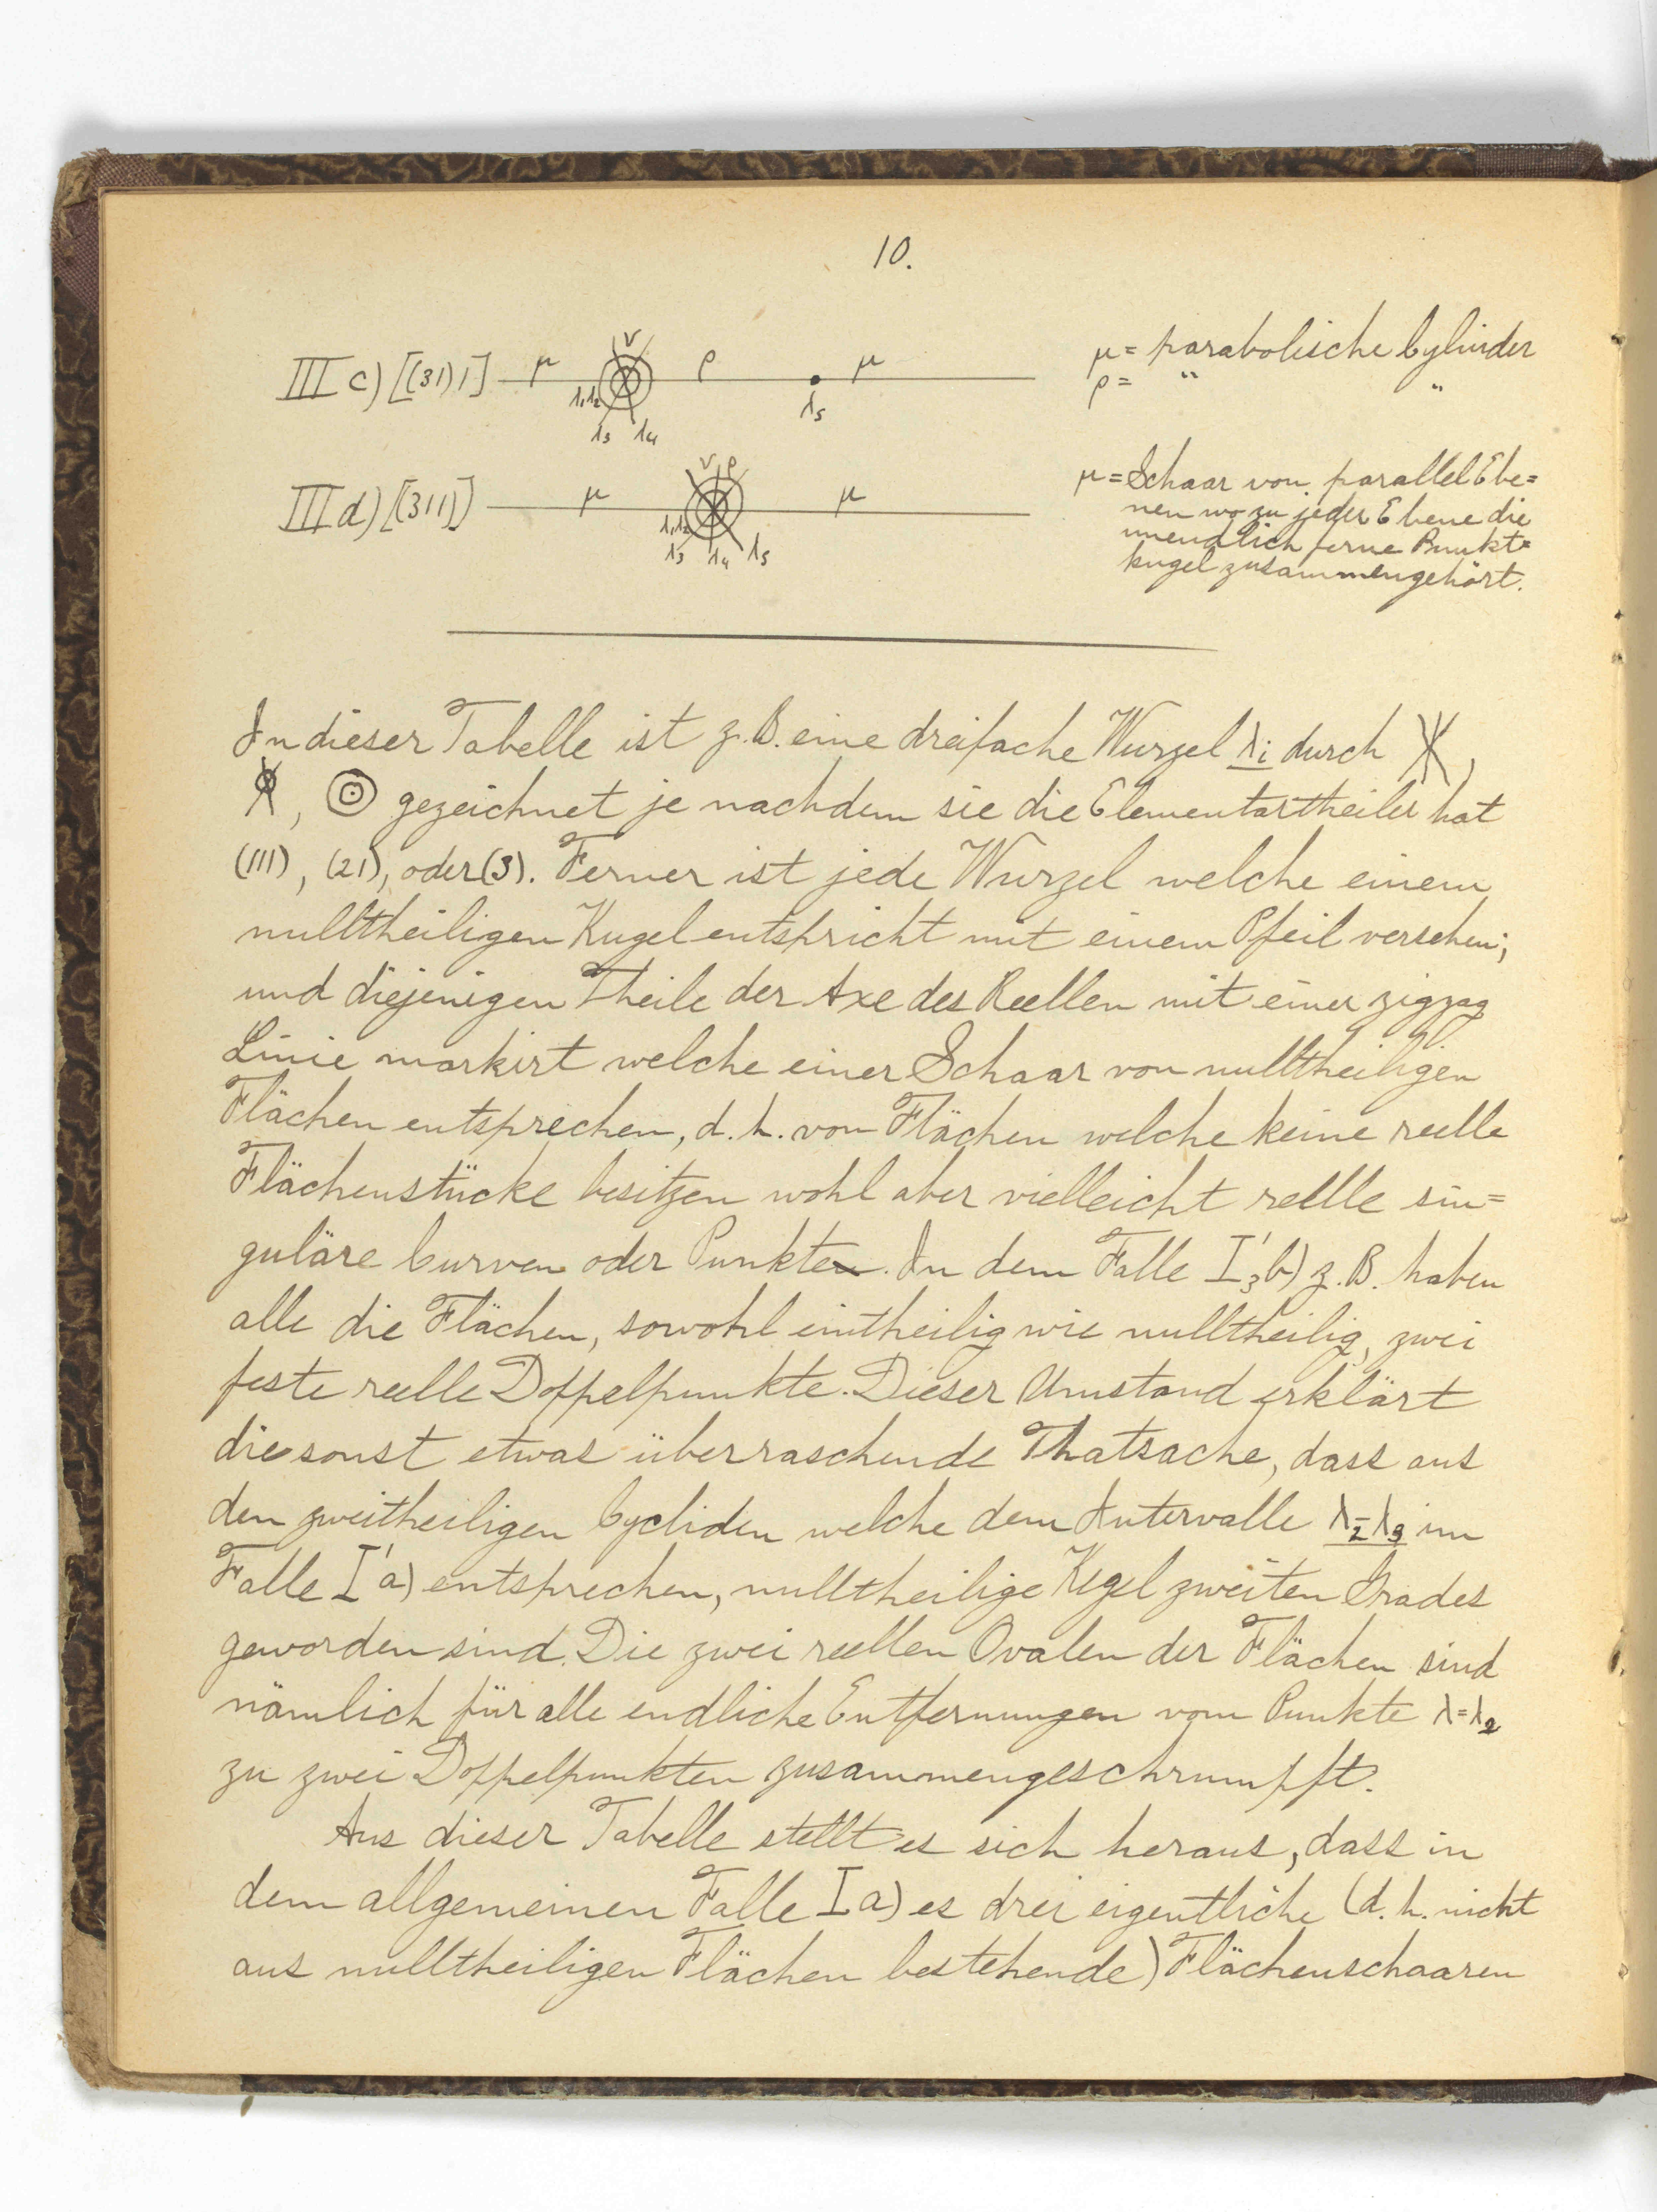 10.
III c) [(31)1] μ ν ρ μ μ = parabolische Cylinder
λ₁λ₂ λ₅ ρ = " "
λ₃ λ₄
III d) [(311)] μ ν ρ μ μ = Schaar von parallel Ebe=
nen wo zu jeder Ebene die
unendlich ferne Punkt=
kugel zusammengehört.
λ₁λ₂
λ₃ λ₄ λ₅
In dieser Tabelle ist z.B. eine dreifache Wurzel λi durch ,
, gezeichnet je nachdem sie die Elementartheiler hat
(111), (21), oder (3). Ferner ist jede Wurzel welche einem
nulltheiligen Kugel entspricht mit einem Pfeil versehen;
und diejenigen Theile der Axe des Reellen mit einer zigzag
Linie markirt welche einer Schaar von nulltheiligen
Flächen entsprechen, d. h. von Flächen welche keine reelle
Flächenstücke besitzen wohl aber vielleicht reelle sin=
guläre Curven oder Punkte. In dem Falle I'₃b) z. B. haben
alle die Flächen, sowohl eintheilig wie nulltheilig, zwei
feste reelle Doppelpunkte. Dieser Umstand erklärt
die sonst etwas überraschende Thatsache, dass aus
den zweitheiligen Cycliden welche dem Intervalle λ₂-λ₃ im
Falle I'a) entsprechen, nulltheilige Kegel zweiten Grades
geworden sind. Die zwei reellen Ovalen der Flächen sind
nämlich für alle endliche Entfernungen vom Punkte λ=λ₂
zu zwei Doppelpunkten zusammengeschrumpft.
Aus dieser Tabelle stellt es sich heraus, dass in
dem allgemeinen Falle I a) es drei eigentliche (d. h. nicht
aus nulltheiligen Flächen bestehende) Flächenschaaren